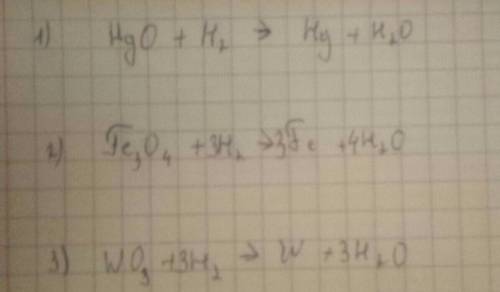 1) HgO + H₂ → Hg + H₂O
2) Fe₃O₄ + 3H₂ → 3Fe + 4H₂O
3) WO₃ + 3H₂ → W + 3H₂O